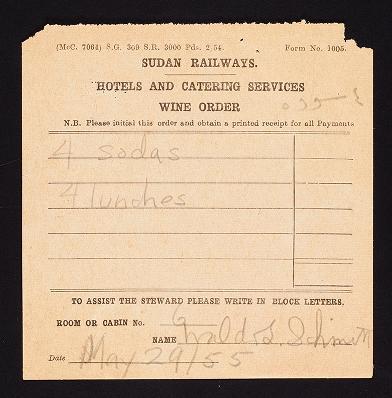 (McC. 7064) S.G. 309 S.R. 3000 Pds. 2/54. Form No. 1005.
SUDAN RAILWAYS.
HOTELS AND CATERING SERVICES
WINE ORDER
N.B. Please initial this order and obtain a printed receipt for all Payments
4 sodas
4 lunches
TO ASSIST THE STEWARD PLEASE WRITE IN BLOCK LETTERS.
ROOM OR CABIN No.
NAME Gerald L. Schmitt
Date May 29/55